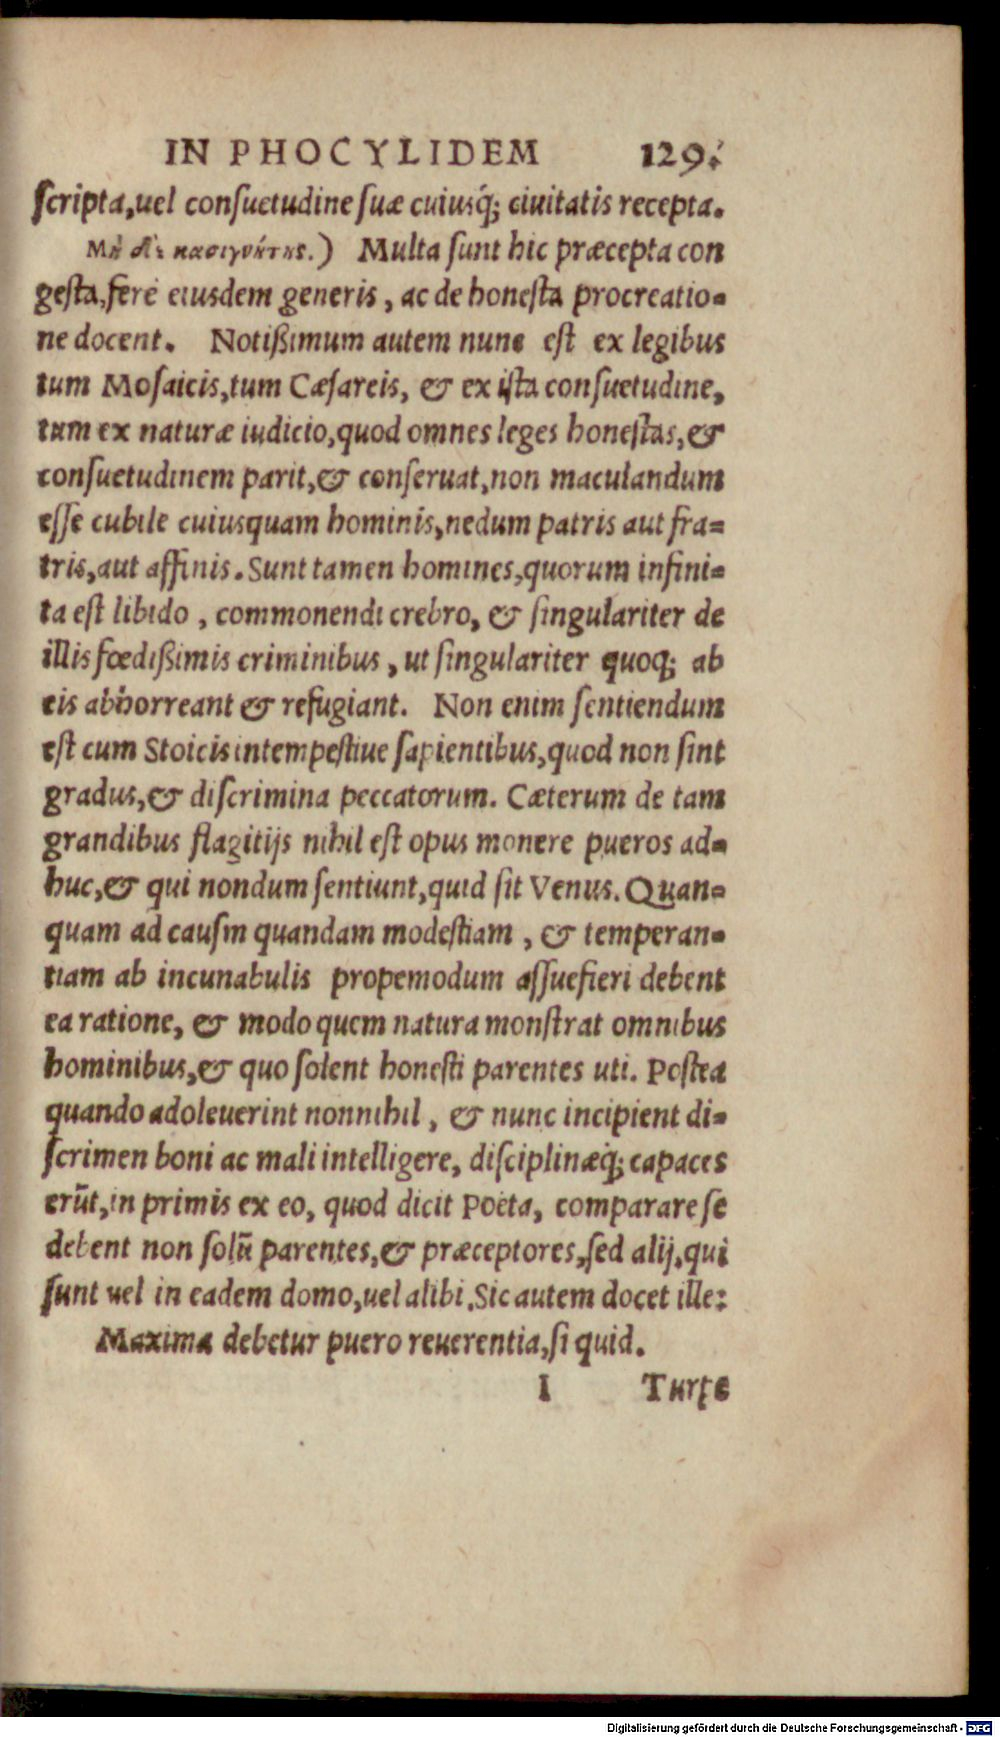 IN PHOCYLIDEM 129.
scripta, uel consuetudine suæ cuiusq́; ciuitatis recepta.
Μὴ δὲ κασιγνήτης.) Multa sunt hic præcepta con
gesta, fere eiusdem generis, ac de honesta procreatio-
ne docent. Notißimum autem nunc est ex legibus
tum Mosaicis, tum Cæsareis, & ex ista consuetudine,
tum ex naturæ iudicio, quod omnes leges honestas, &
consuetudinem parit, & conseruat, non maculandum
esse cubile cuiusquam hominis, nedum patris aut fra-
tris, aut affinis. Sunt tamen homines, quorum infini-
ta est libido, commonendi crebro, & singulariter de
illis fœdißimis criminibus, ut singulariter quoq; ab
eis abhorreant & refugiant. Non enim sentiendum
est cum Stoicis intempestiue sapientibus, quod non sint
gradus, & discrimina peccatorum. Cæterum de tam
grandibus flagitijs nihil est opus monere pueros ad-
huc, & qui nondum sentiunt, quid sit Venus. Quan-
quam ad causm quandam modestiam, & temperan-
tiam ab incunabulis propemodum assuefieri debent
ea ratione, & modo quem natura monstrat omnibus
hominibus, & quo solent honesti parentes uti. Postea
quando adoleuerint nonnihil, & nunc incipient di-
scrimen boni ac mali intelligere, disciplinæq́; capaces
erūt, in primis ex eo, quod dicit Poëta, comparare se
debent non solū parentes, & præceptores, sed alij, qui
sunt uel in eadem domo, uel alibi. Sic autem docet ille:
Maxima debetur puero reuerentia, si quid.
I Turpe
Digitalisierung gefördert durch die Deutsche Forschungsgemeinschaft - DFG